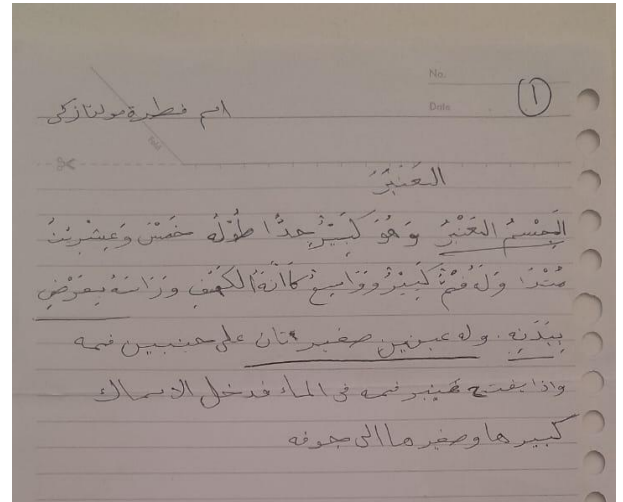 No.
Date
١
ام فطرة مولنا زكى
fold
العَنْبَرُ
الجِسْمُ العَنْبَرُ وَهُوَ كَبِيْرٌ جِدًّا طُوْلُهُ خَمْسَ وَعِشْرِيْنَ
مِتْرًا وَلَهُ فُمٌ كَبِيْرٌ وَوَاسِعٌ كَأَنَّهُ الكَهْفِ وَرَاسَهُ بِعَرْضِ
بِبَدَنِهِ. وله عينين صغيرتان على جنبين فمه
واذا يفتح عنبر فمه فى الماء فدخل الاسماك
كبيرها وصغيرها الى جوفه